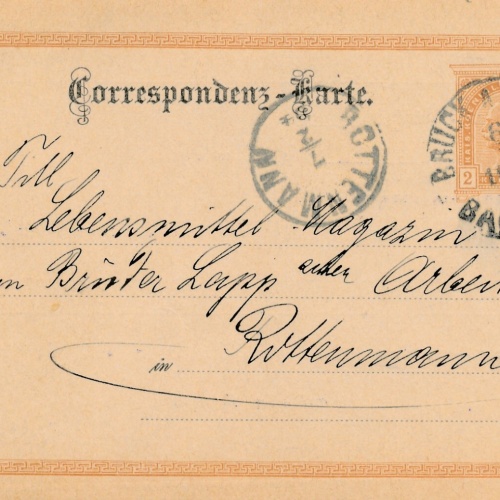 Correspondenz-Karte.
ROTTENMANN
BRUCK A
2
Till
Lebensmittel Magazin
Brüder Lapp Arbei
Rottenmann
in